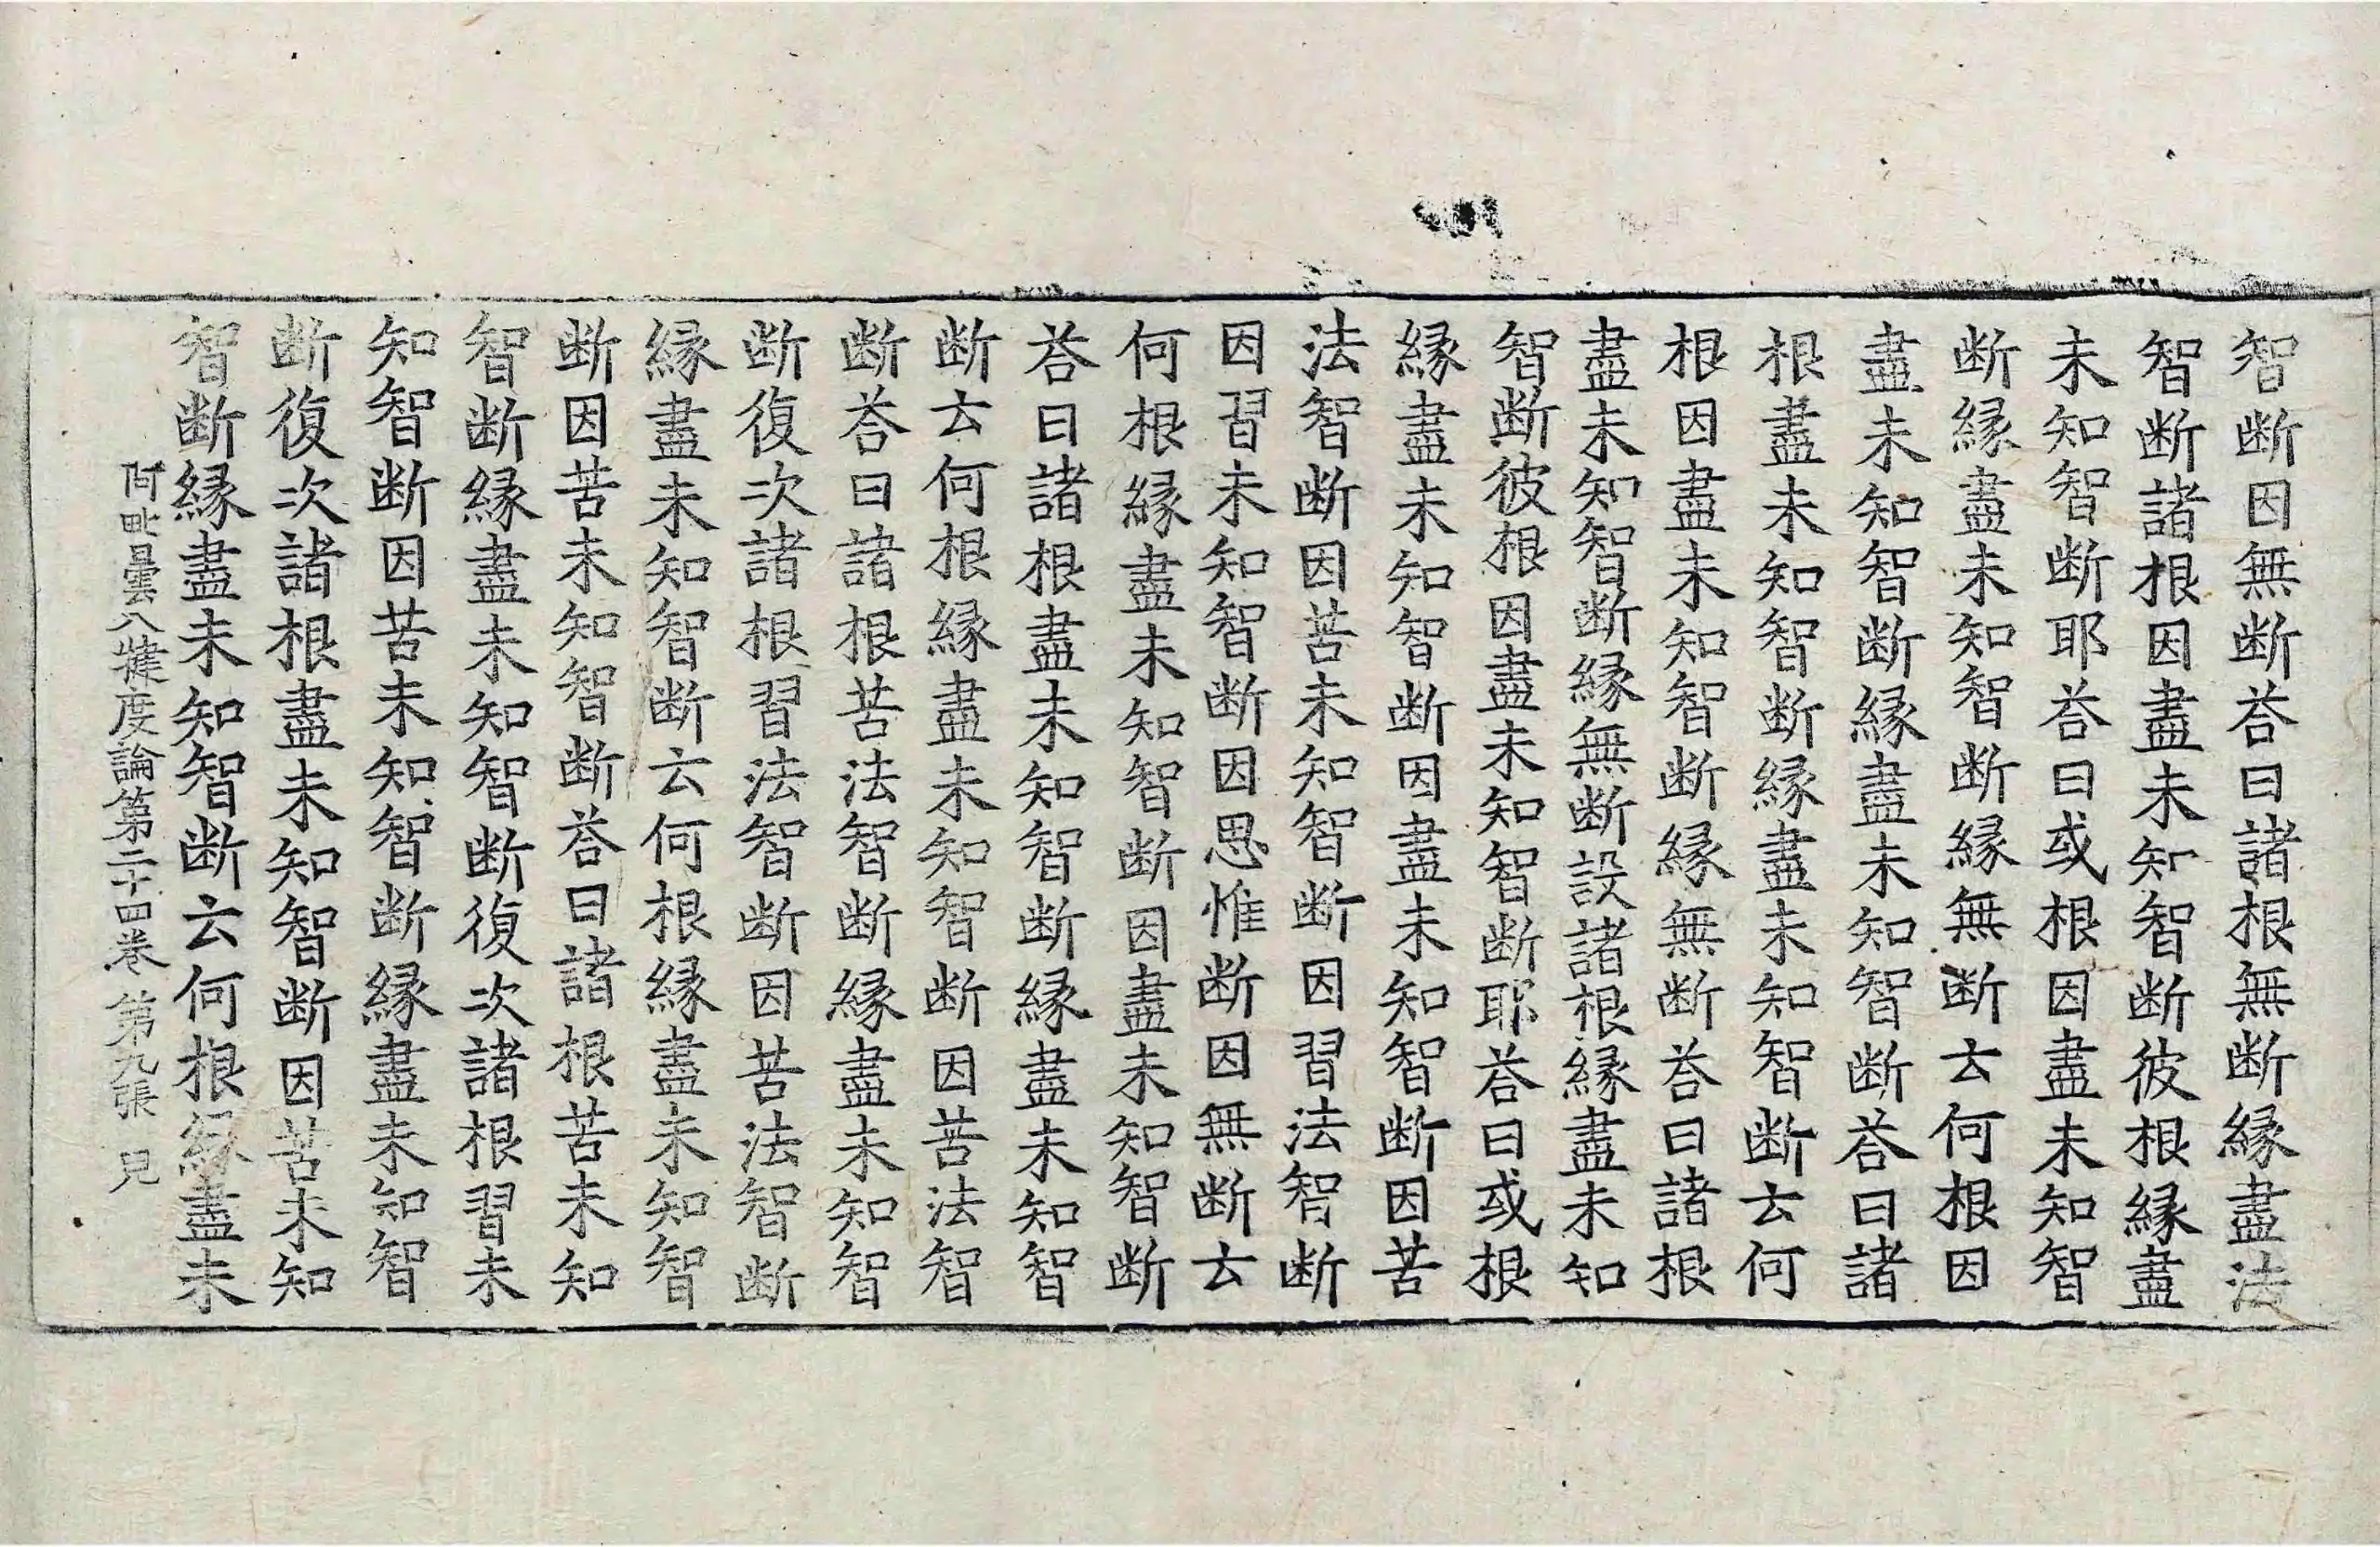 智断因無断荅曰諸根無断縁盡法
智断諸根因盡未知智断彼根縁盡
未知智断耶荅曰或根因盡未知智
断縁盡未知智断縁無断云何根因
盡未知智断縁盡未知智断荅曰諸
根盡未知智断縁盡未知智断云何
根因盡未知智断縁無断荅曰諸根
盡未知智断縁無断設諸根縁盡未知
智断彼根因盡未知智断耶荅曰或根
縁盡未知智断因盡未知智断因苦
法智断因苦未知智断因習法智断
因習未知智断因思惟断因無断云
何根縁盡未知智断因盡未知智断
荅曰諸根盡未知智断縁盡未知智
断云何根縁盡未知智断因苦法智
断荅曰諸根苦法智断縁盡未知智
断復次諸根習法智断因苦法智断
縁盡未知智断云何根縁盡未知智
断因苦未知智断荅曰諸根苦未知
智断縁盡未知智断復次諸根習未
知智断因苦未知智断縁盡未知智
断復次諸根盡未知智断因苦未知
智断縁盡未知智断云何根縁盡未
阿毗曇八犍度論第二十四卷 第九張 見